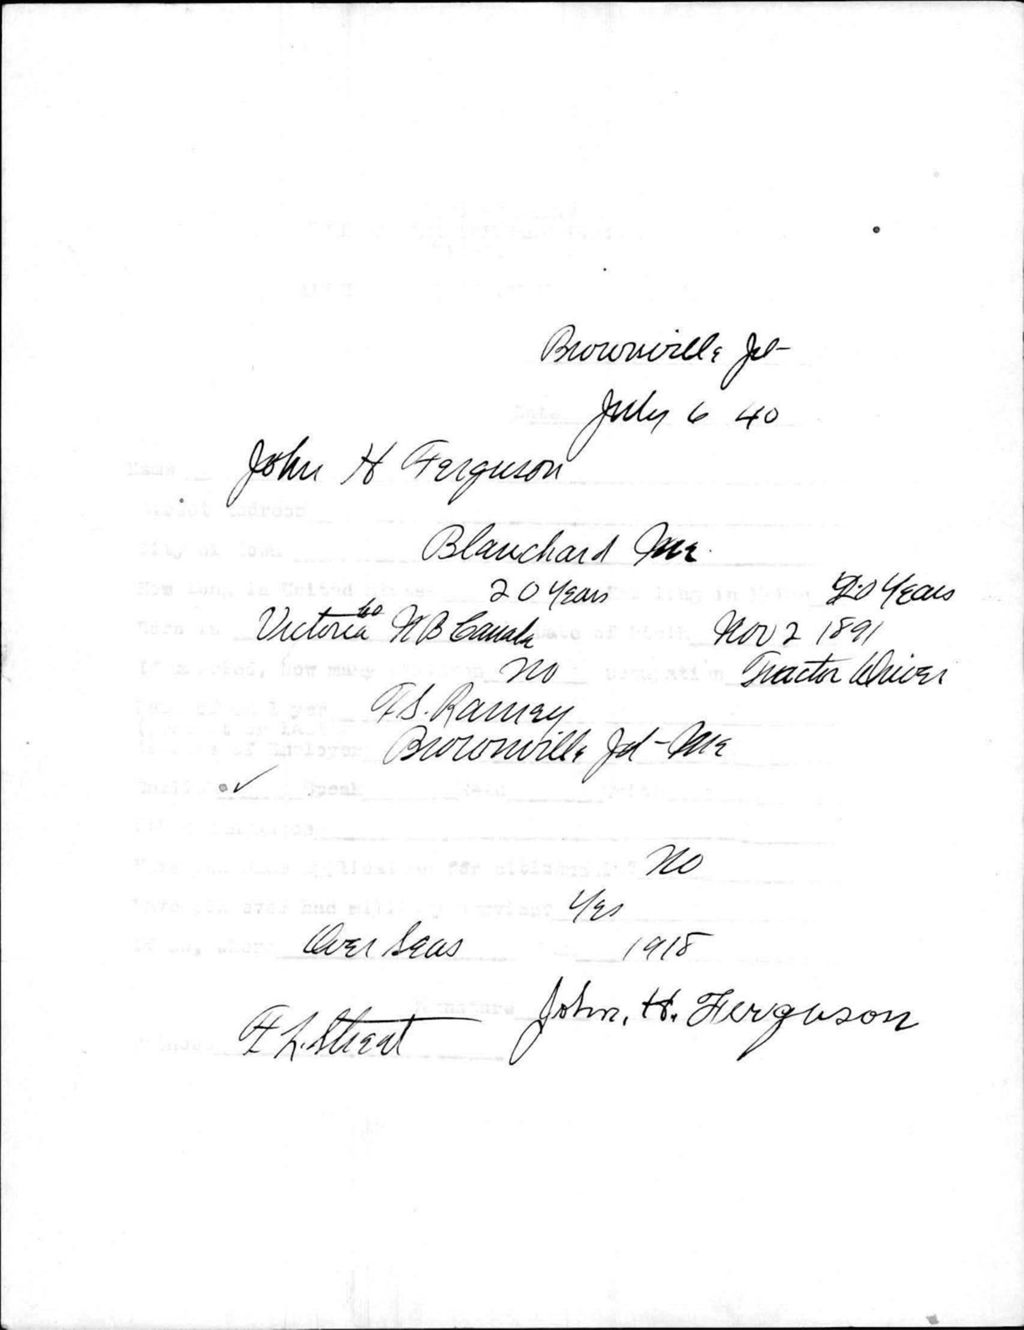 Brownville Jct
Date July 6 40
Name John H Ferguson
Street Address
City or Town Blanchard Me.
How long in United States 20 Years How long in Maine 20 Years
Born in Victoria Co NB Canada Date of birth Nov 2 1891
If married, how many children No Occupation Tractor Driver
Name of employer F.S. Ramsey
Address of employer Brownville Jct Me
English ✓ Speak Read
Other languages
Have you made application for citizenship? No
Have you ever had military service? Yes
If so, where Over Seas 1918
Signature John. H. Ferguson
Witness F L. Street